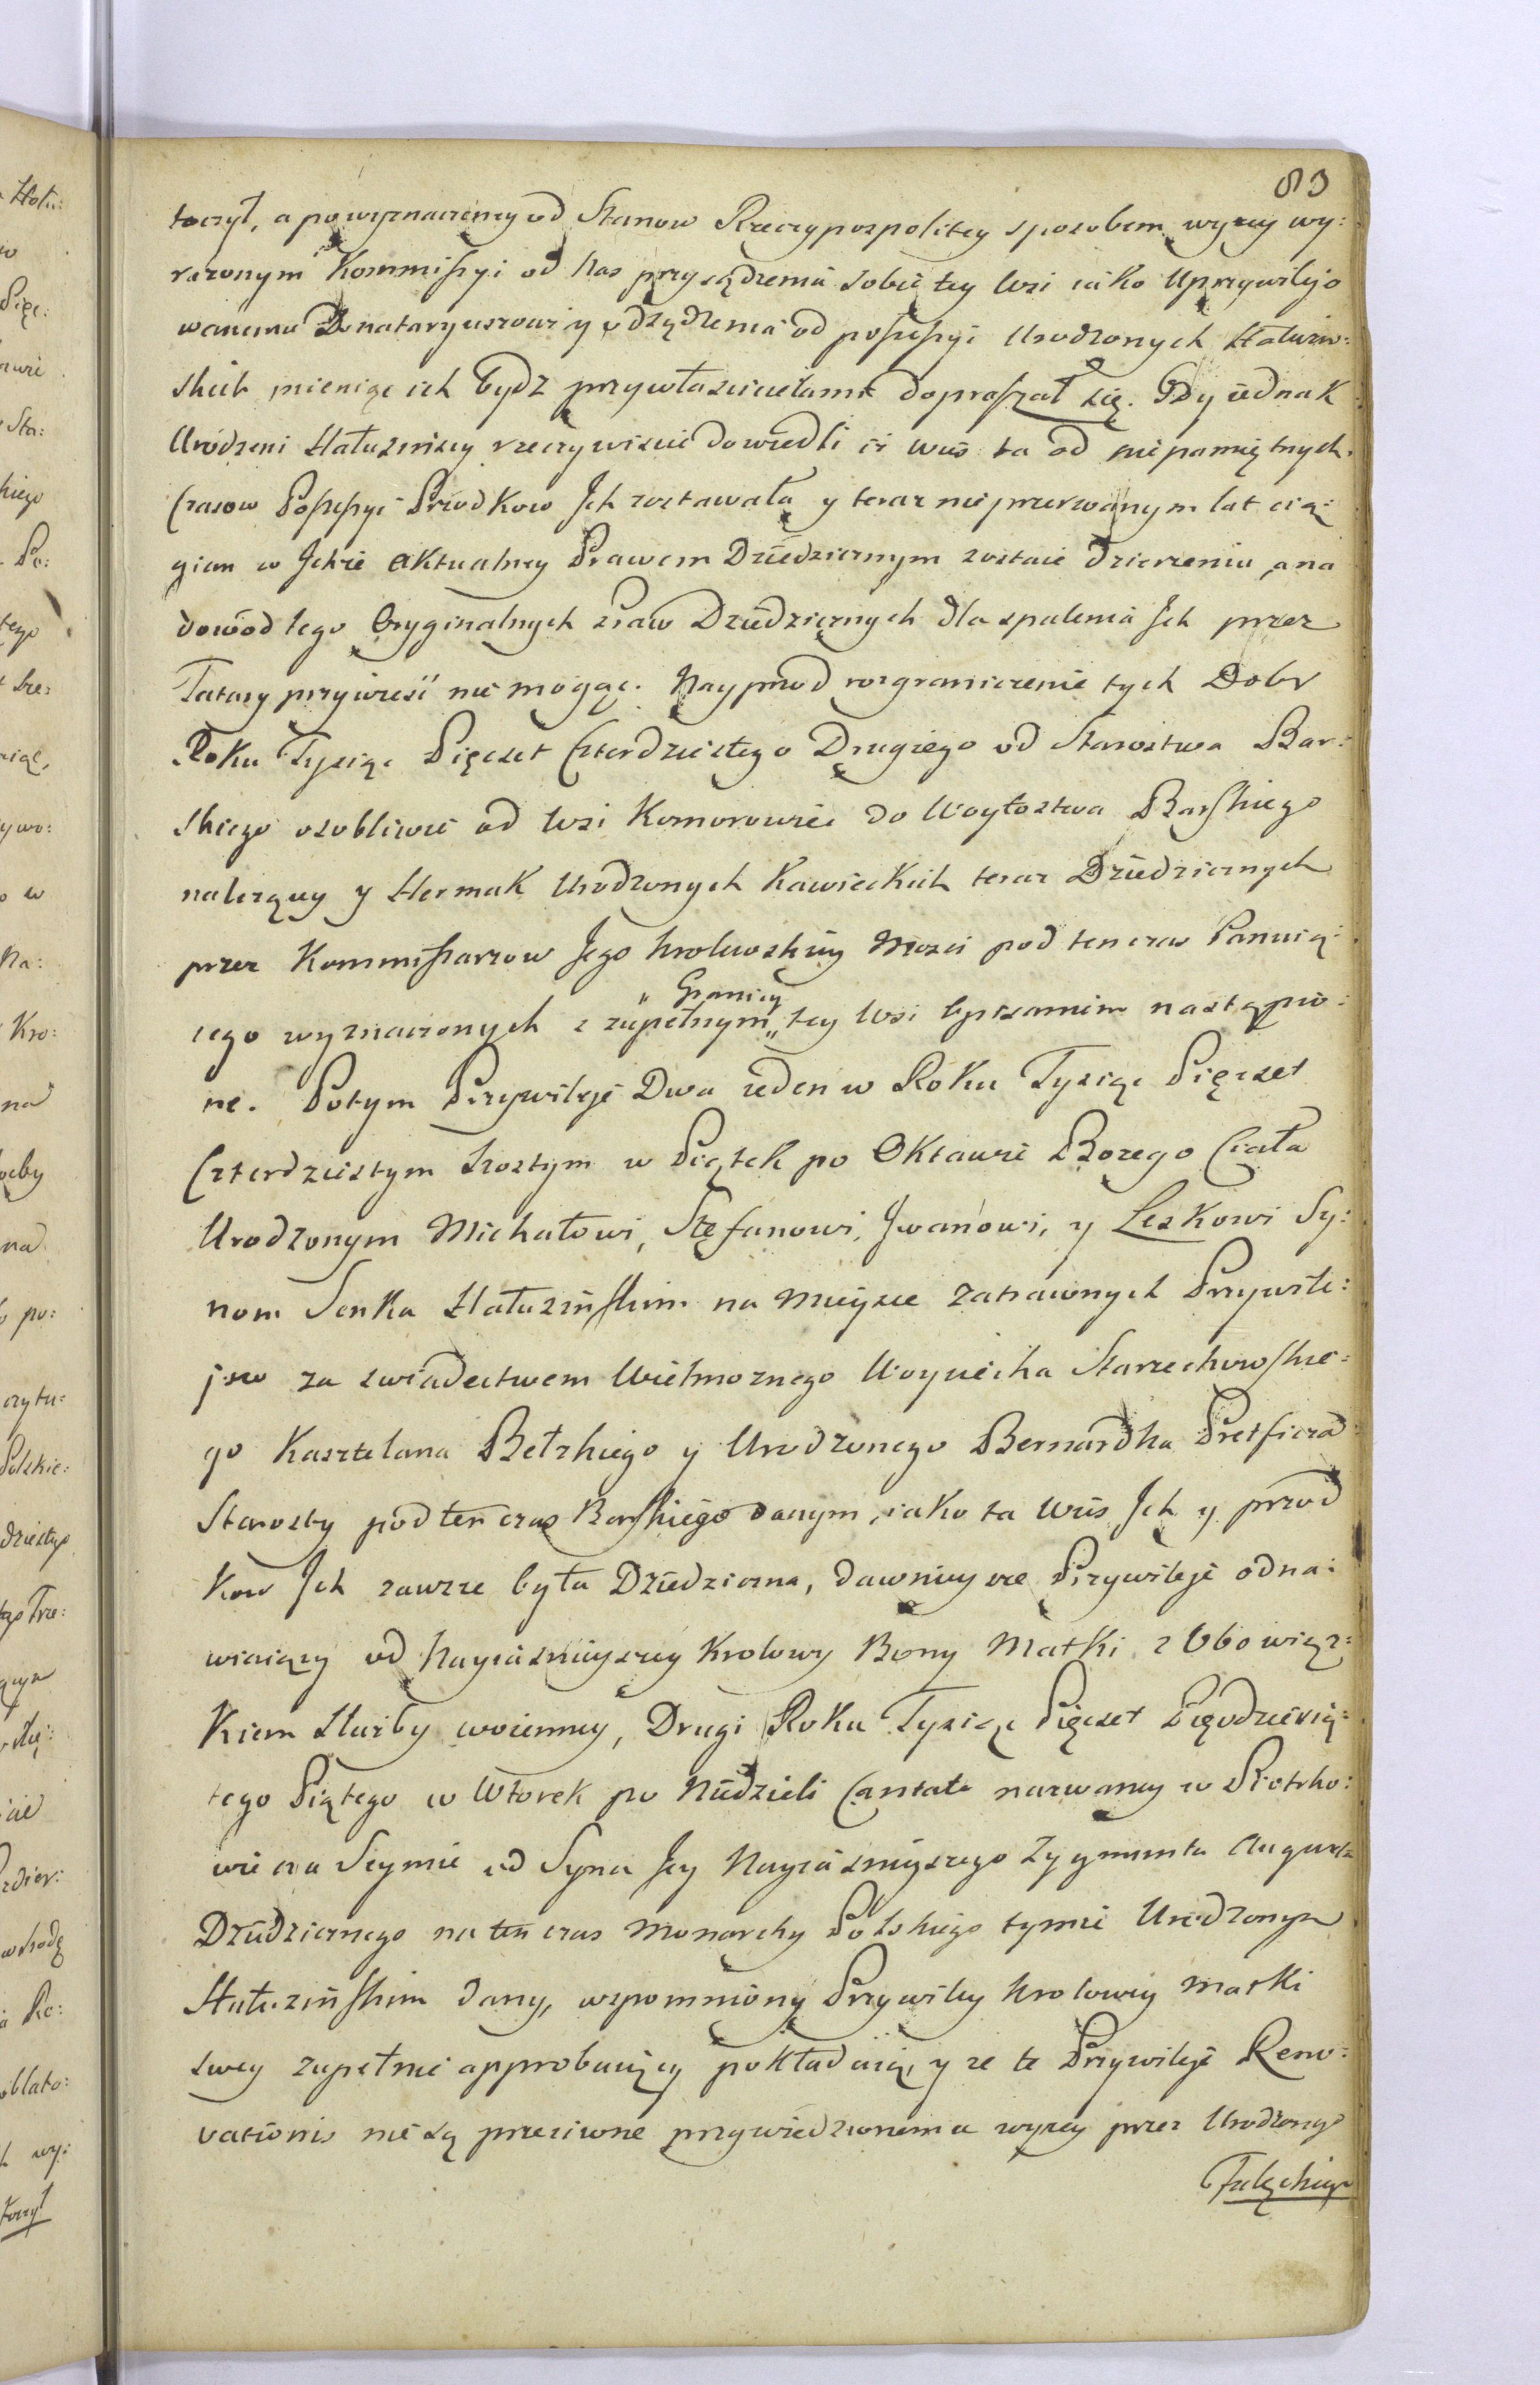 83
toczył, a po wyznaczoney od Stanow Rzeczypospolitey sposobem wyzey wy:
razonym Kommissyi od Nas przysądzenia sobie tey Wsi iako Uprzywilejo
wanemu Donataryuszowi y odsądzenia od possessyi Urodzonych Hałuziń:
skich mieniąc ich bydz przywłaścicielami dopraszał się. Gdy iednak
Urodzeni Hałuzińscy rzeczywiście dowiedli iż Wieś ta od niepamiętnych
Czasow Possessyi Przodkow Ich zostawała y teraz nieprzerwanym lat cią:
giem w Ichże aktualney Prawem Dziedzicznym zostaie dzierzeniu, a na
dowód tego Oryginalnych Praw Dziedzicznych dla spalenia Ich przez
Tatary przywieść nie mogąc. Nayprzod rozgraniczenie tych Dobr
Roku Tysiąc Pięcset Czterdziestego Drugiego od Starostwa Bar:
skiego osobliwie od Wsi Komorowiec do Woytostwa Barskiego
nalezącey y Hermak Urodzonych Kawieckich teraz Dziedzicznych
przez Kommissarzow Jego Krolewskiey Mości pod ten czas Panuią:
cego wyznaczonych z zupełnym „Granicy„ tey Wsi Opisaniem nastąpio:
ne. Potym Przywileje Dwa ieden w Roku Tysiąc Pięcset
Czterdziestym Szostym w Piątek po Oktawie Bozego Ciała
Urodzonym Michałowi, Stefanowi, Iwanowi, y Leskowi Sy:
nom Senka Hałuzińskim na Mieysce zatrawnych Przywile:
jow za świadectwem Wielmoznego Woyciecha Starzechowskie:
go Kasztelana Bełzkiego y Urodzonego Bernardha Pretficza
Starosty pod ten czas Barskiego danym, iako ta Wieś Ich y przod
kow Ich zawsze była Dziedziczna, dawnieysze Przywileje odna:
wiaiący od Nayiaśnieyszey Krolowy Bony Matki z Obowiąz:
kiem służby woienney, Drugi Roku Tysiąc Pięcset Pięćdziesią:
tego Piątego w Wtorek po Niedzieli Cantate nazwaney w Piotrko:
wie na Seymie od Syna Jey Nayiaśnieyszego Zygmunta Augusta
Dziedzicznego na ten czas Monarchy Polskiego tymże Urodzonym
Hałuzińskim dany, wspomniony Przywiley Krolowey Matki
swey zupełnie approbuiący pokładaiąc, y ze te Przywileje Reno:
vationis nie są przeciwne przywiedzionemu wyzey przez Urodzonego
Falęckiego